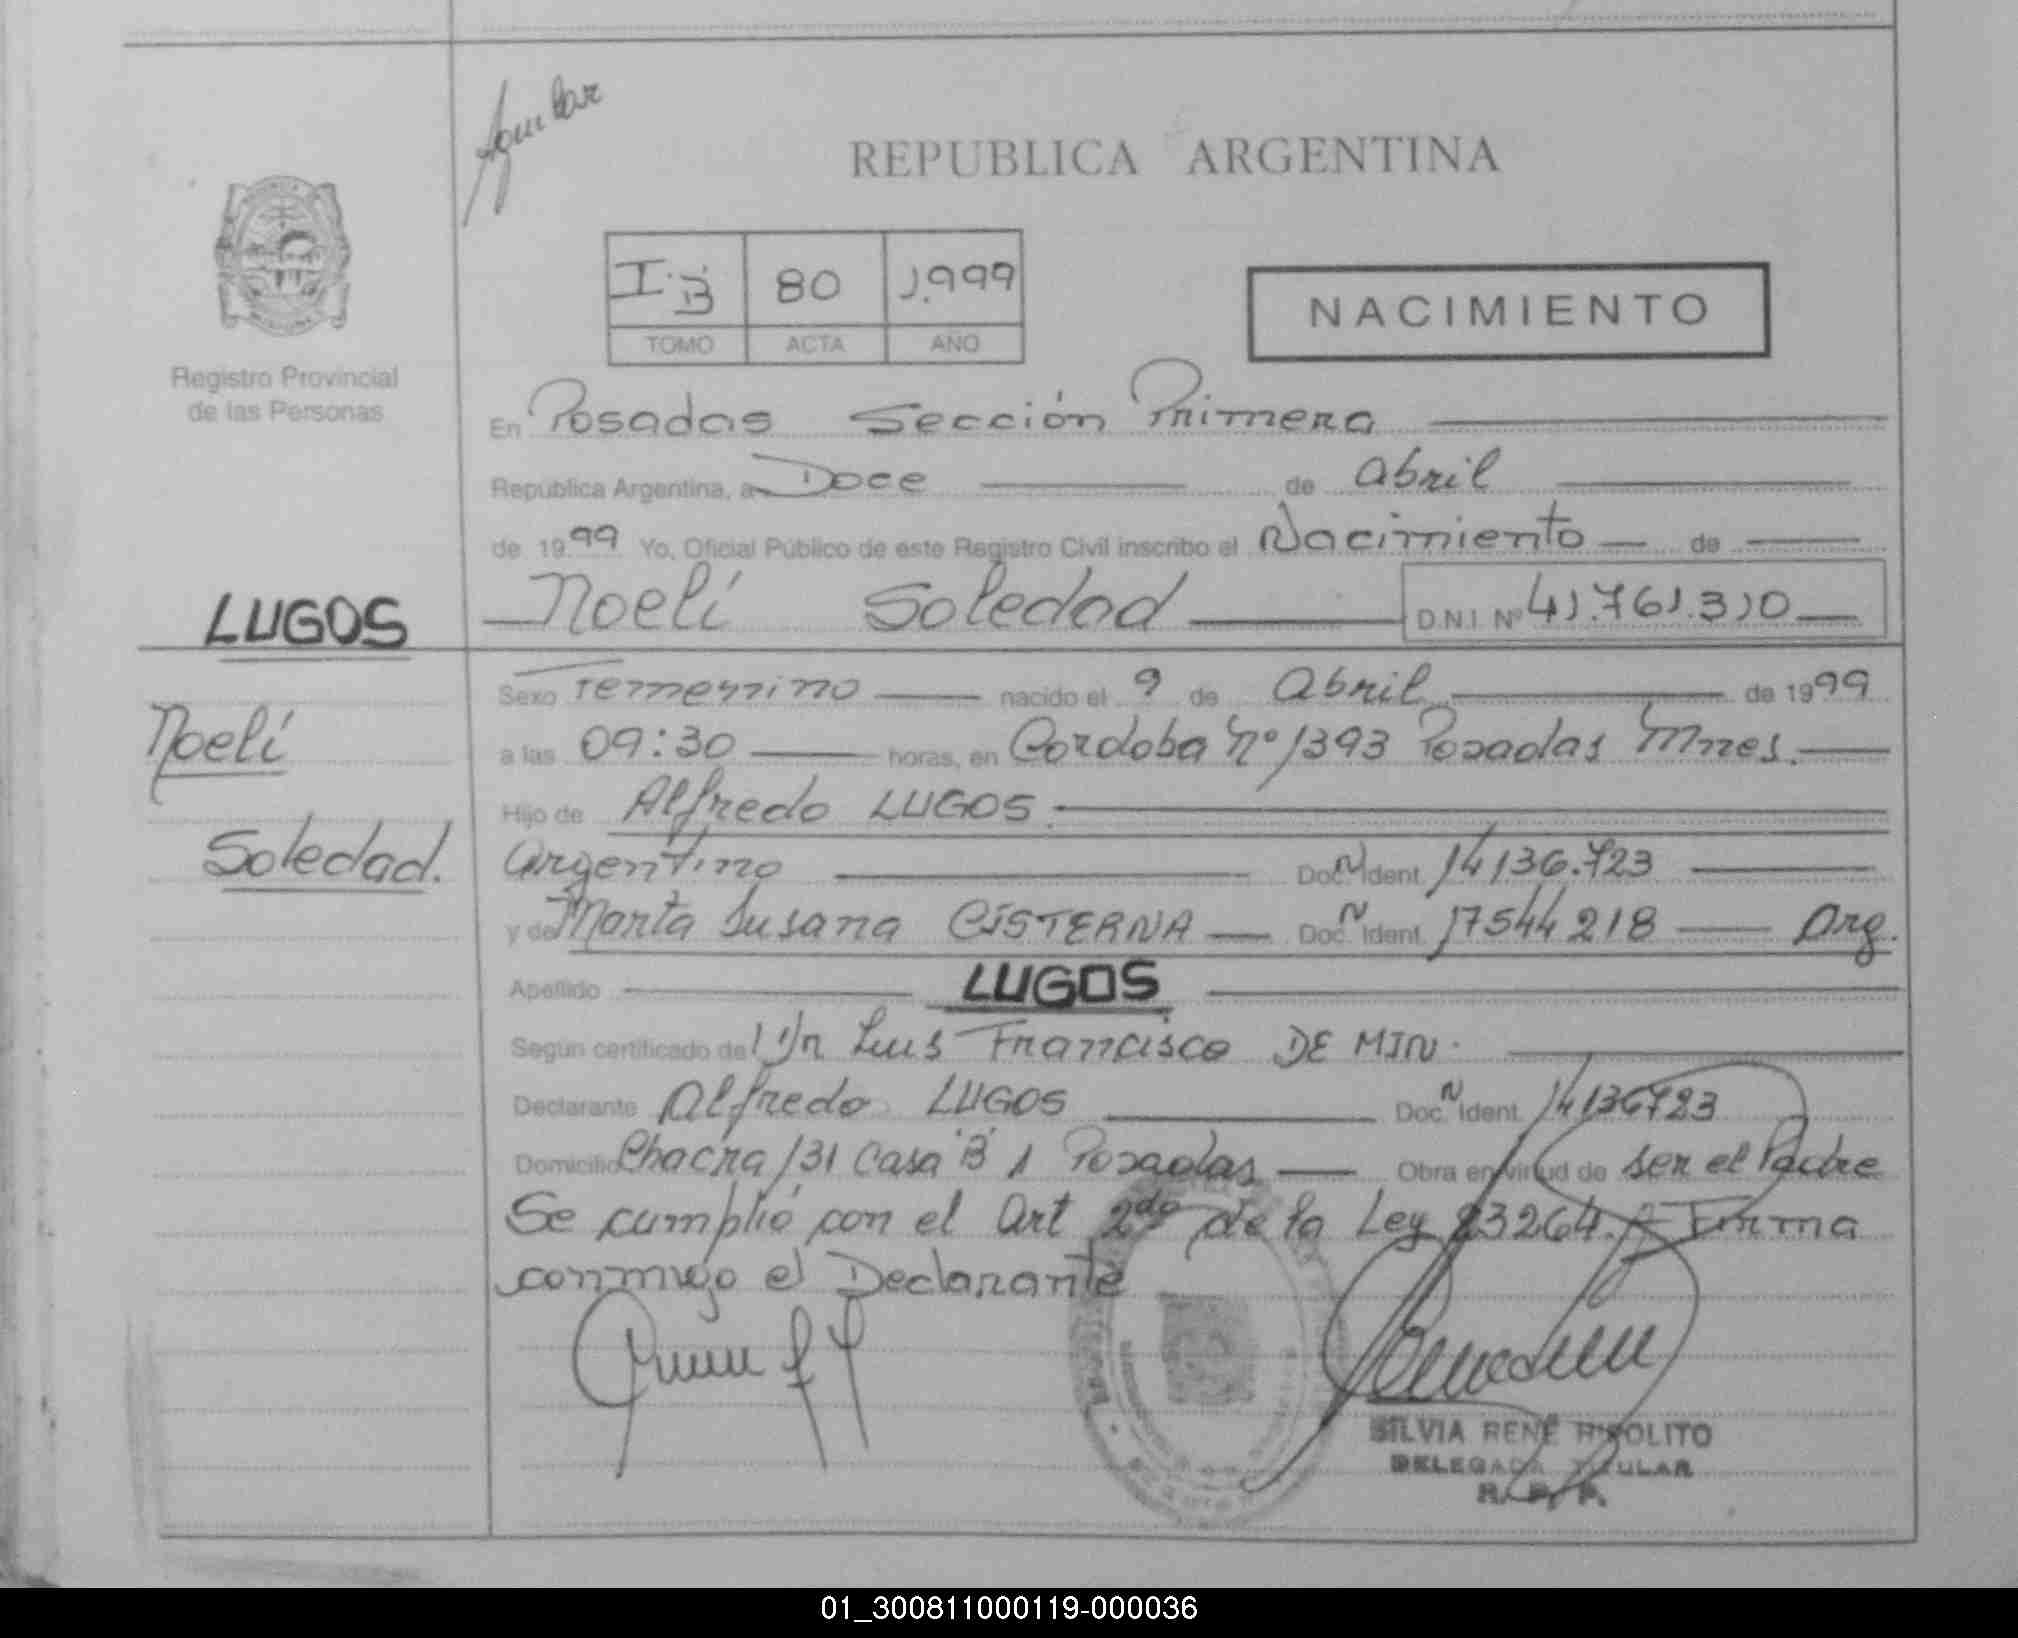 Aguilar
REPUBLICA ARGENTINA
I "B" 80 1.999
TOMO ACTA AÑO
NACIMIENTO
Registro Provincial
de las Personas
En Posadas Sección Primera
Republica Argentina, a Doce de abril
de 1999 Yo, Oficial Público de este Registro Civil inscribo el Nacimiento de
Noelí Soledad D.N.I. Nº 41.761.310
LUGOS
Noelí
Soledad.
Sexo Femenino nacido el 9 de Abril de 1999
a las 09:30 horas, en Cordoba Nº 1393 Posadas Mnes.
Hijo de Alfredo LUGOS
Argentino Doc. N Ident. 14136.723
y de Marta Susana CISTERNA Doc. N Ident. 17544218 Arg.
Apellido LUGOS
Según certificado de Dr Luis Francisco DE MIN.
Declarante Alfredo LUGOS Doc. N Ident. 14136723
Domicilio Chacra 131 Casa "B" 1 Posadas Obra en virtud de ser el Padre
Se cumplió con el Art 2do de la Ley 23264. Firma
conmigo el Declarante
SILVIA RENÉ HIPOLITO
DELEGADA TITULAR
R. P. P.
01_300811000119-000036